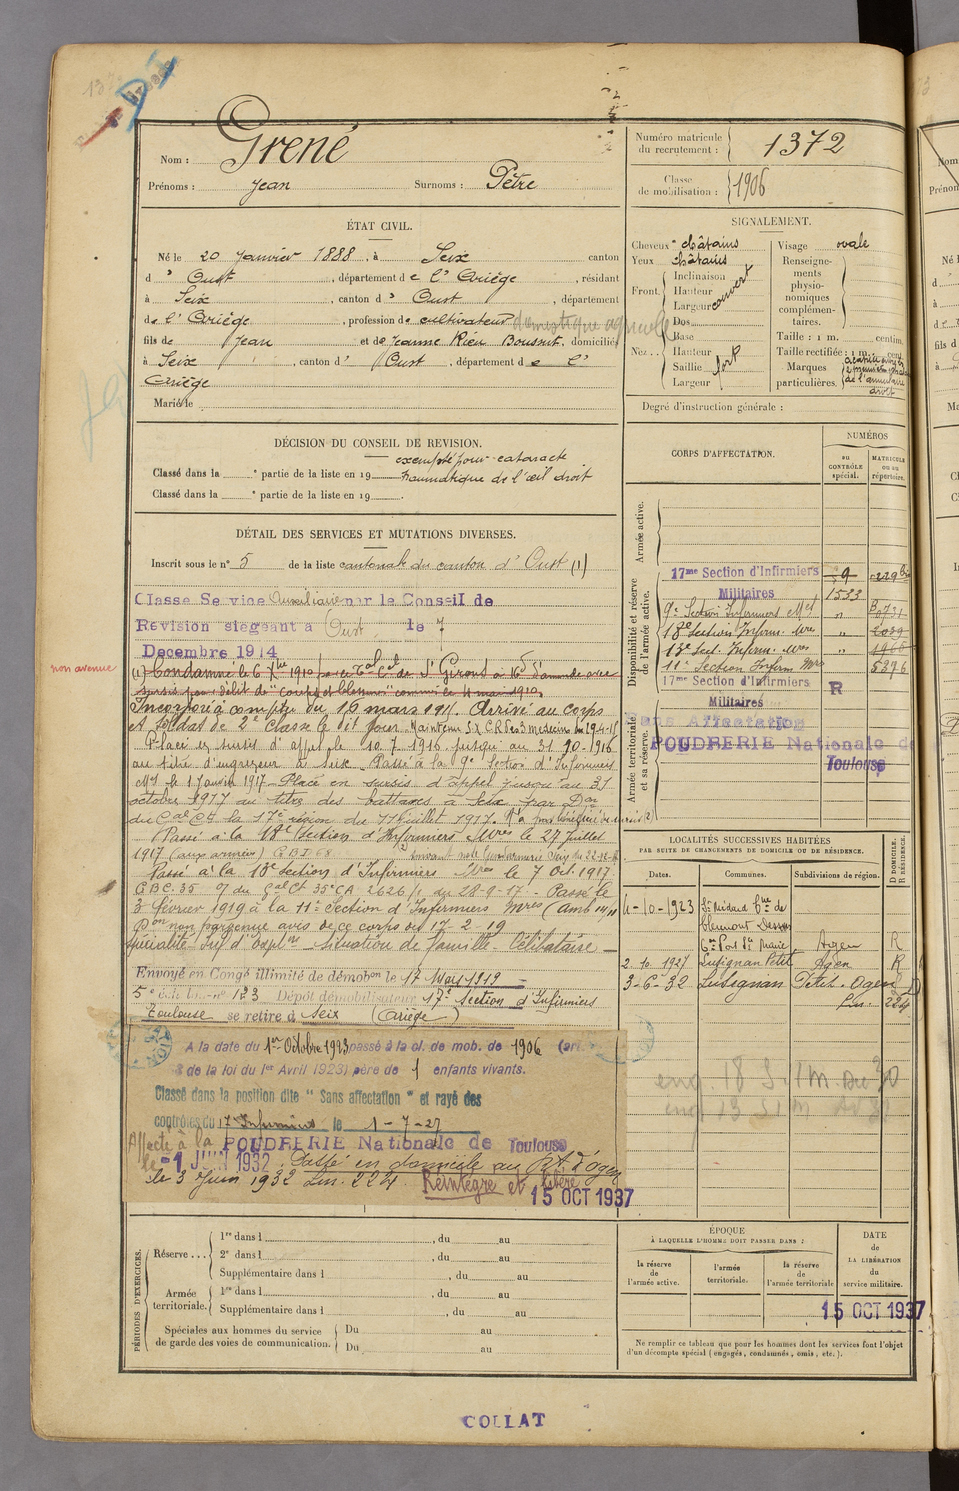 Grené
Nom :
Prénoms : Jean Surnoms : Pètre
Numéro matricule du recrutement : 1372
Classe de mobilisation : 1906
ÉTAT CIVIL.
Né le 20 Janvier 1888, à Seix canton
d' Oust, département de l'Ariège, résidant
à Seix, canton d' Oust, département
de l'Ariège, profession de cultivateur domestique agricole
fils de Jean et de Jeanne Rieu Boussut, domiciliés
à Seix, canton d' Oust, département de l'
Ariège
Marié le
SIGNALEMENT.
Cheveux châtains
Yeux châtains
Front Inclinaison
Hauteur
Largeur
couvert
Nez Dos
Base
Hauteur
Saillie
Largeur
fort
Visage ovale
Renseignements physionomiques complémentaires.
Taille : 1 m. centim.
Taille rectifiée : 1 m. cent.
Marques particulières.
de l'annulaire
droit
Degré d'instruction générale :
DÉCISION DU CONSEIL DE REVISION.
exempté pour cataracte
Classé dans la partie de la liste en 19 traumatique de l'œil droit
Classé dans la partie de la liste en 19
DÉTAIL DES SERVICES ET MUTATIONS DIVERSES.
Inscrit sous le n° 5 de la liste cantonale du canton d' Oust (1)
Classé Service Auxiliaire par le Conseil de
Révision siégeant à Oust le 7
Decembre 1914
non avenue
(1) Condamné le 6 Xbre 1910 par le Cal Cel de St Girons à 16 d'amende avec
sursis pour délit de "coups et blessures" commis le 4 mai 1910.
Incorporé à compter du 16 mars 191 . Arrivé au corps
et soldat de 2e Classe le dit jour. Maintenu S.X C.R. des 3 médecins du
Placé en sursis d'appel le 10.7.1916 jusqu'au 31.10.1916
au titre d' à Seix. Passé à la 9e Section d'Infirmiers
Mres le 1 Janvier 1917 - Placé en sursis d'appel jusqu'au 31
octobre 1917 au titre des battages à Seix par Don
du Gal Ct la 17e région du 11 juillet 1917. N'a pas bénéficié du sursis (2)
Passé à la 18e Section d'Infirmiers Mres le 27 Juillet
1917 (aux armées)
Passé à la 13e Section d'Infirmiers Mres le 7 Oct. 1917
G.B.C. 35 du Gal Ct 35e CA 2626/1 du 28-9-17 - Passé le
3 février 1919 à la 11e Section d'Infirmiers Mres
Pon non parvenue avis de ce corps du 17-2-19
Situation de famille. Célibataire
Envoyé en Congé illimité de démobon le 17 Mars 1919
5e échelon n° 123 Dépôt démobilisateur 17e Section d'Infirmiers
Toulouse se retire à Seix (Ariège)
A la date du 1er Octobre 1923 passé à la cl. de mob. de 1906 (art.
de la loi du 1er Avril 1923) père de 1 enfants vivants.
Classé dans la position dite " Sans affectation " et rayé des
contrôles du 17e Infirmiers le 1-7-27
Affecté à la POUDRERIE Nationale de Toulouse
le -1 JUIN 1932. Passé en domicile au Rt d'Agen
le 3 Juin 1932 Lin. 224 Réintégré et libéré
15 OCT 1937
CORPS D'AFFECTATION.
NUMÉROS
au contrôle spécial.
matricule ou au répertoire.
Armée active.
Disponibilité et réserve de l'armée active.
17me Section d'Infirmiers 9
Militaires 1533
9e Section Infirmiers Mres
18e Section Infirm. Mres 2039
13e Sect. Infirm. Mres
11e Section Infirm Mres 5276
17me Section d'Infirmiers R
Militaires
Armée territoriale et sa réserve.
Sans Affectation
POUDRERIE Nationale de
Toulouse
LOCALITÉS SUCCESSIVES HABITÉES
PAR SUITE DE CHANGEMENTS DE DOMICILE OU DE RÉSIDENCE.
Dates. Communes. Subdivisions de région. D domicile. R résidence.
4-10-1923 St Médard Cne de
Clermont Dessous
Con Port Ste Marie Agen R
2.10.1927 Lusignan Petit Agen R
3-6-32 Lusignan Petit. Agen D
Lin. 224
PÉRIODES D'EXERCICES.
Réserve 1re dans l , du au
2e dans l , du au
Supplémentaire dans l , du au
Armée territoriale. 1re dans l , du au
Supplémentaire dans l , du au
Spéciales aux hommes du service de garde des voies de communication. Du au
Du au
ÉPOQUE
À LAQUELLE L'HOMME DOIT PASSER DANS :
la réserve de l'armée active.
l'armée territoriale.
la réserve de l'armée territoriale
DATE de LA LIBÉRATION du service militaire.
15 OCT 1937
Ne remplir ce tableau que pour les hommes dont les services font l'objet
d'un décompte spécial (engagés, condamnés, omis, etc.).
COLLAT